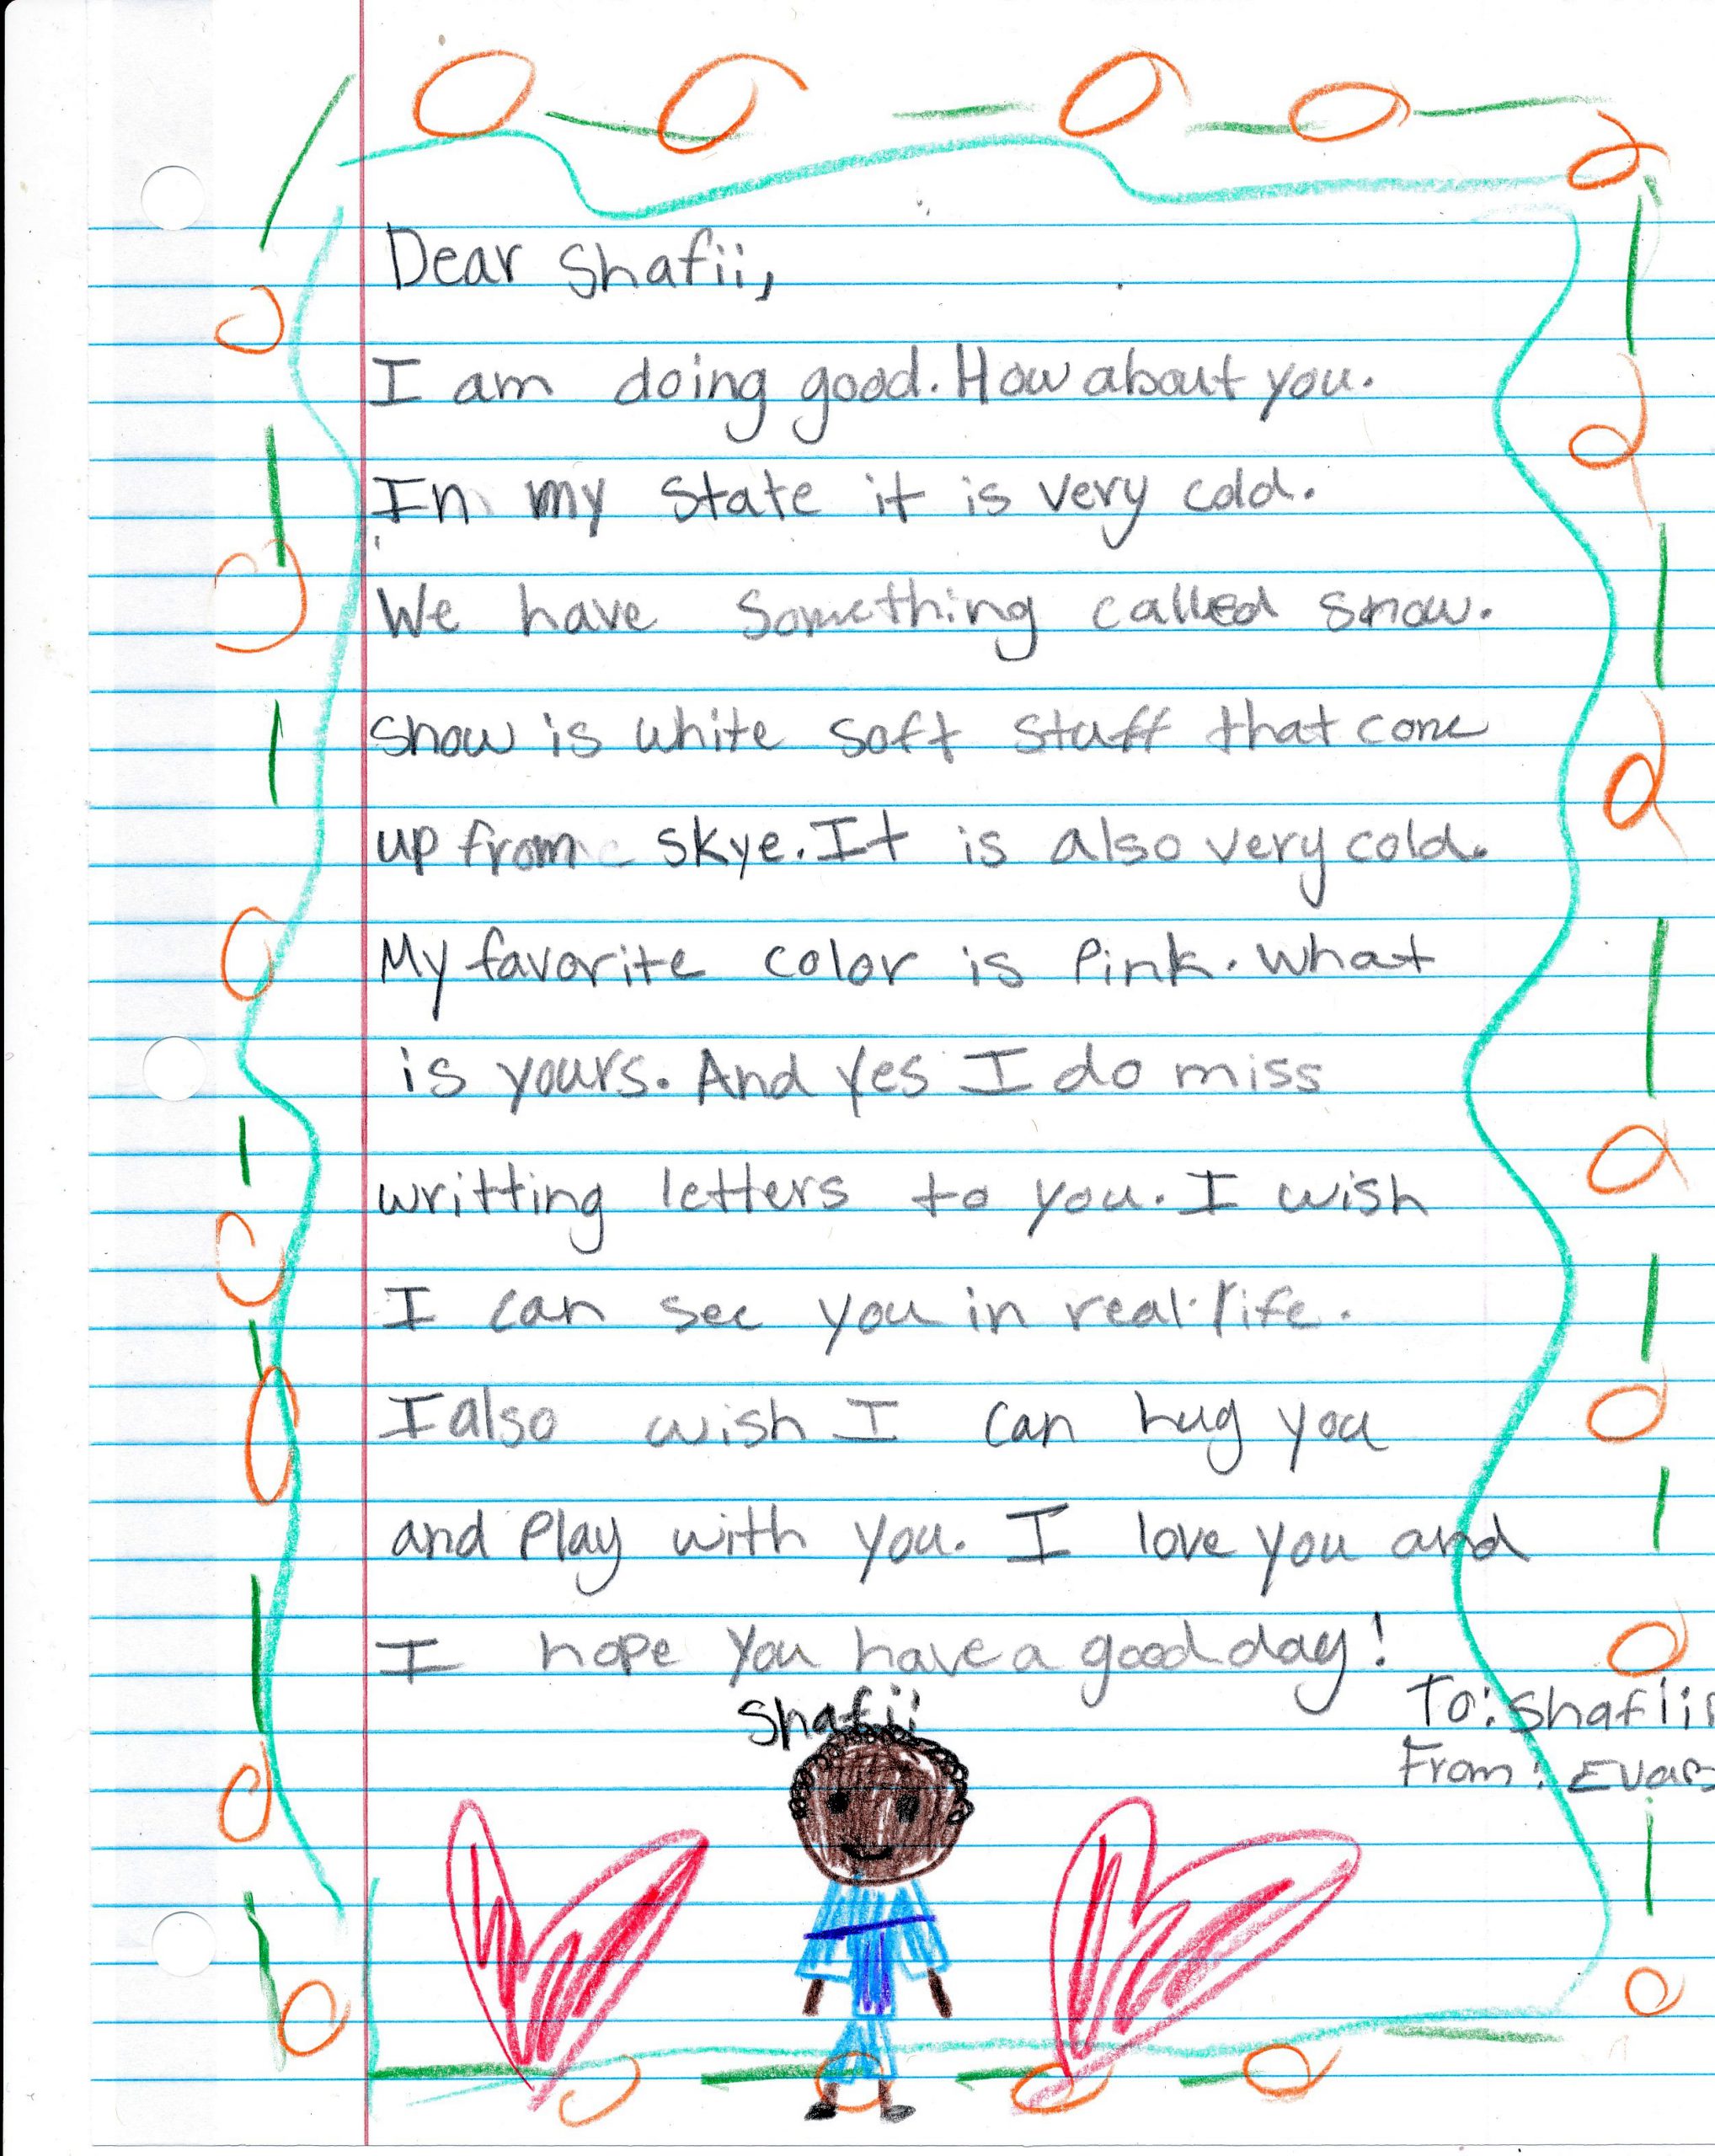 Dear Shafii,
I am doing good. How about you.
In my state it is very cold.
We have something called snow.
snow is white soft stuff that come
up from skye. It is also very cold.
My favorite color is Pink. What
is yours. And yes I do miss
writting letters to you. I wish
I can see you in real life.
I also wish I can hug you
and Play with you. I love you and
I hope you have a good day!
Shafii
To: Shafiii
From: Evan